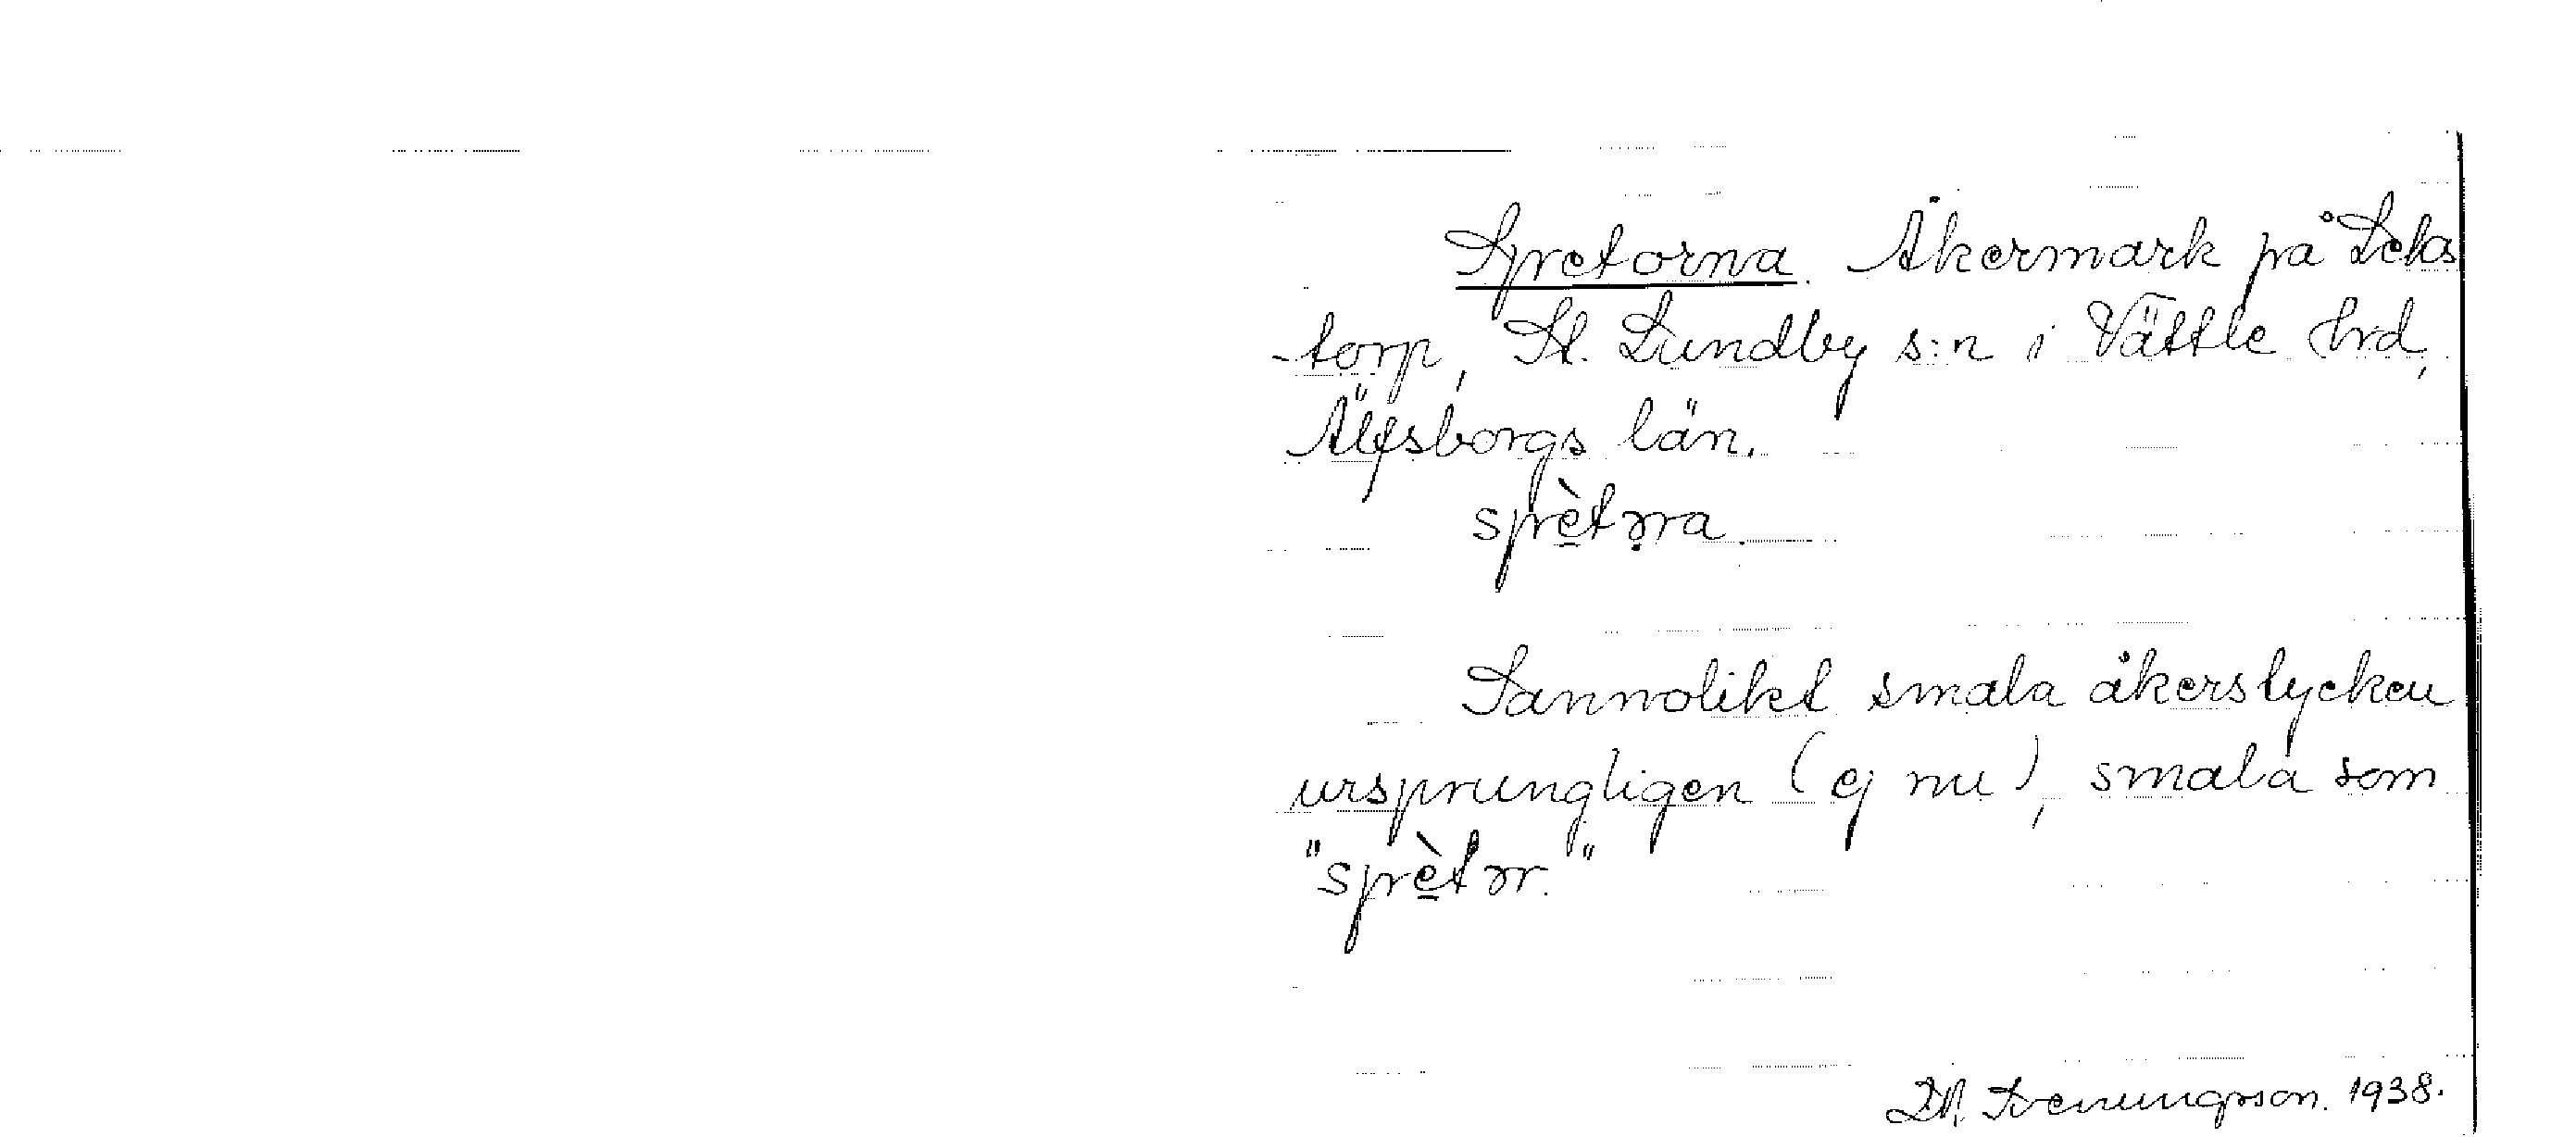 Spretorna. Åkermark på Lekas
-torp, St. Lundby s:n i Vättle hrd,
Älfsborgs län.
sprètərra.
Sannolikt smala åkerstycken
ursprungligen (ej nu), smala som
"sprètər."
Svenungsson. 1938.